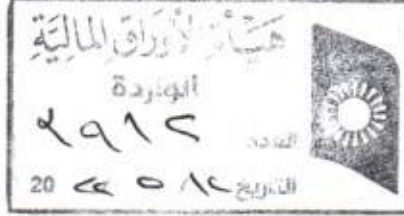 هيئة الأوراق المالية
الواردة
العدد
التاريخ ١٢ ٥ ٢٢ 20